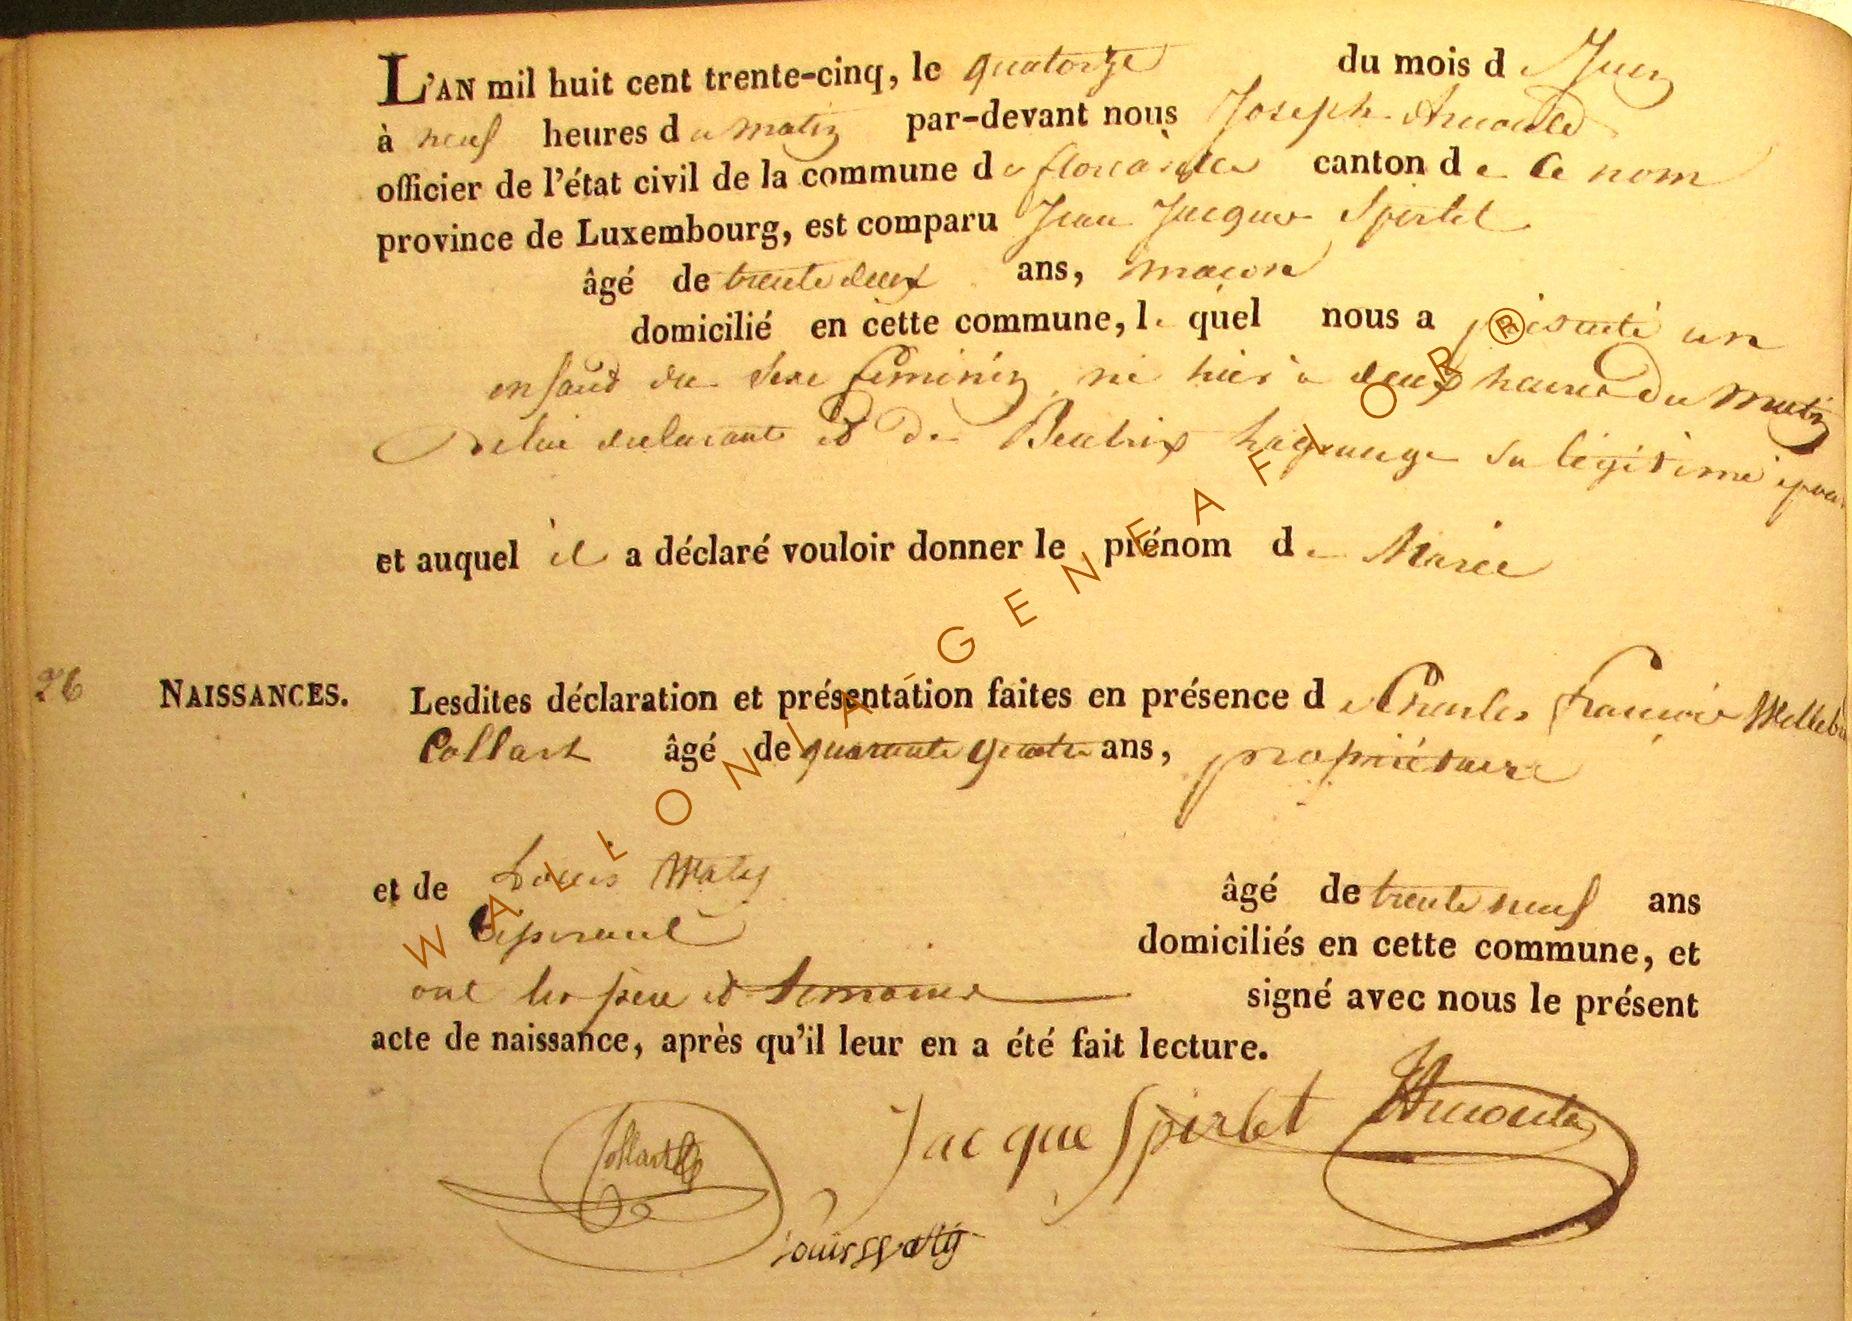 L'AN mil huit cent trente-cinq, le quatorze du mois de Juin
à neuf heures du matin par-devant nous Joseph Arnould
officier de l'état civil de la commune de florenville canton de ce nom
province de Luxembourg, est comparu Jean Jacques Spirlet
âgé de trente deux ans, maçon
domicilié en cette commune, lequel nous a présenté un
enfant du sexe feminin né hier à deux heures du matin
de lui declarant et de Beatrix lagrange sa légitime
et auquel il a déclaré vouloir donner le prénom de Marie
26 NAISSANCES. Lesdites déclaration et présentation faites en présence de Charles François
Collart âgé de quarante quatre ans, propriétaire
et de Louis Waty âgé de trente neuf ans
domiciliés en cette commune, et
ont les père et temoins signé avec nous le présent
acte de naissance, après qu'il leur en a été fait lecture.
Collart Jacque Spirlet Arnould
Louis Watÿ
WALLONIA-GENEAFLOR®